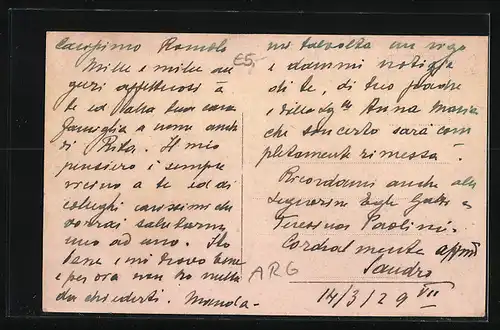 Carissimo Romolo
Mille e mille au
guri affettuosi a
te ed alla tua cara
famiglia a nome anche
di Rita. Il mio
pensiero è sempre
vicino a te ed ai
colleghi carissimi che
vorrai salutarmi
uno ad uno. Sto
bene e mi trovo bene
e per ora non ho nulla
da chiederti. Manda-
mi talvolta un rigo
e dammi notizie
di te, di tuo padre
e della Anna Maria
che son certo sarà com
pletamente rimessa.
Ricordami anche alle
signorine Egle e
Teresina Paolini.
Cordialmente
Sandro
14/3/29 VII
E5,-
ARG